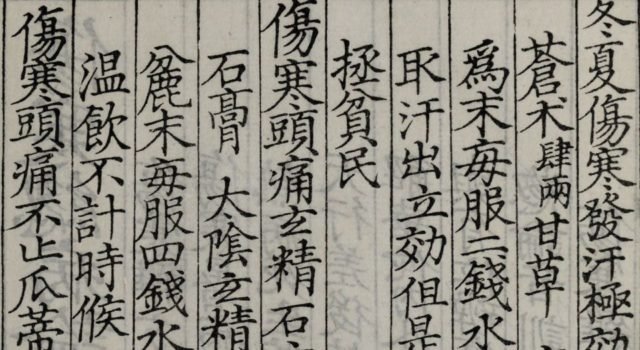 冬夏傷寒發汗極効
蒼术肆兩甘草
爲末毎服二錢水
取汗出立効但是
拯貧民
傷寒頭痛玄精石
石膏 太陰玄精
右麄末毎服四錢水
温飲不計時候
傷寒頭痛不止瓜蔕